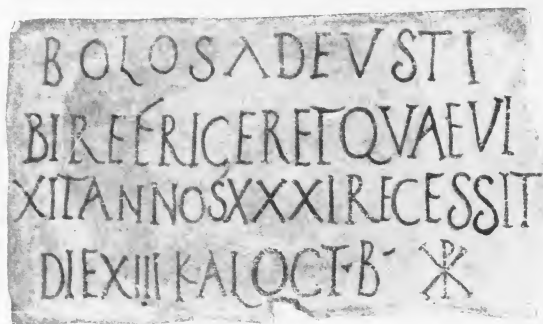 BOLOSADEVSTI
BIREFRIGERETQVAEVI
XITANNOSXXXIRECESSIT
DIEXIIIKALOCT·B· ☧